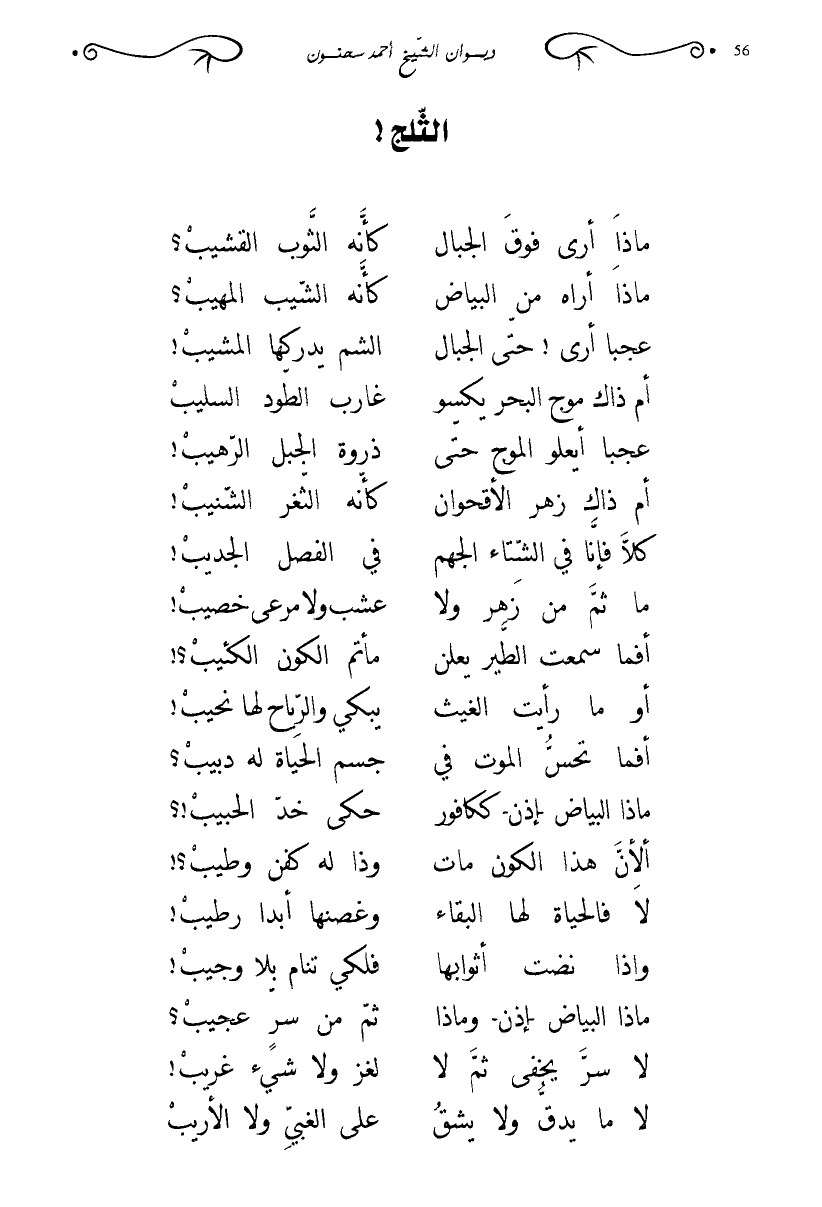 56 ديوان الشّيخ أحمد سحنون
الثّلج !
ماذَا أرى فوقَ الجبال كأنَّه الثَّوب القشيبْ؟
ماذَا أراه من البياض كأنَّه الشّيب المهيبْ؟
عجبا أرى ! حتّى الجبال الشم يدركها المشيبْ!
أم ذاك موج البحر يكسو غارب الطود السليبْ
عجبا أيعلو الموج حتّى ذروة الجبل الرّهيبْ!
أم ذاك زهر الأقحوان كأنّه الثّغر الشّنيبْ!
كلاَّ فإنَّا في الشّتاء الجهم في الفصل الجديبْ!
ما ثمَّ من زَهر ولا عشب ولا مرعى خصيبْ!
أفما سمعت الطير يعلن مأتم الكون الكئيبْ؟!
أو ما رأيت الغيث يبكي والرّياح لها نحيبْ!
أفما تحسُّ الموت في جسم الحَياة له دبيبْ؟
ماذا البياض -إذن- ككافور حكى خدّ الحبيبْ!؟
ألأنَّ هذا الكون مات وذا له كفن وطيبْ؟!
لاَ فالحياة لها البقاء وغصنها أبدا رطيبْ!
وإذا نضت أثوابها فلكي تنام بِلا وجيبْ!
ماذا البياض -إذن- وماذا ثمّ من سرٍ عجيبْ؟
لا سرَّ يخفى ثمَّ لا لغز ولا شيء غريبْ!
لا ما يدقُّ ولا يشقُ على الغبيِّ ولا الأريبْ